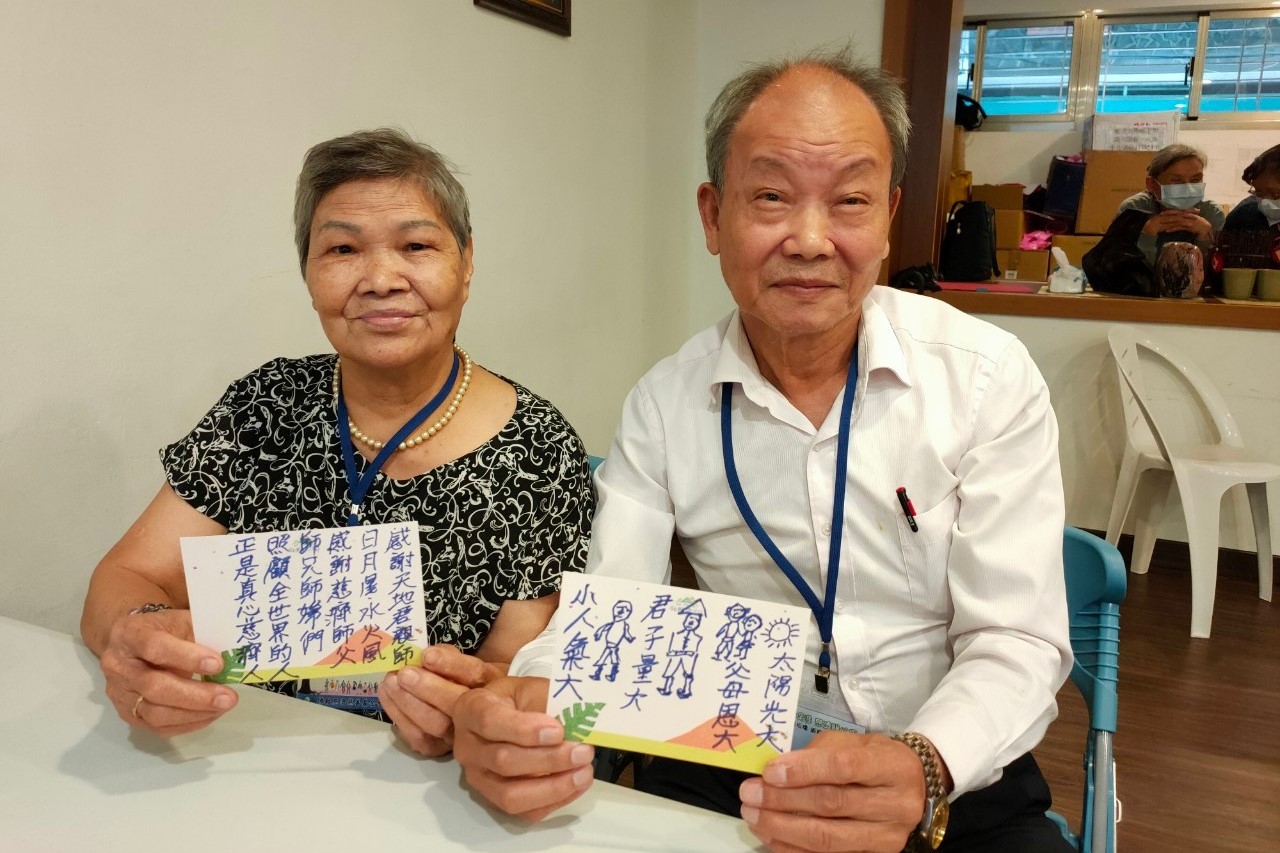 感謝天地君親師
日月星水火風
感謝慈濟師父
師兄師姊們
照顧全世界的人
正是真心慈濟人
太陽光大
父母恩大
君子量大
小人氣大